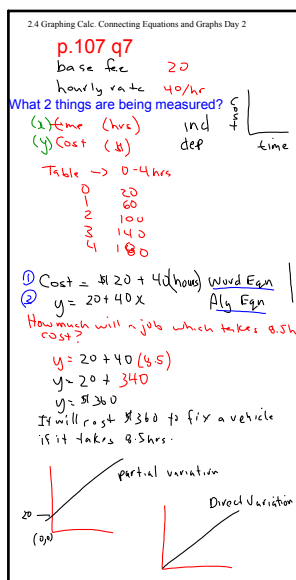 2.4 Graphing Calc. Connecting Equations and Graphs Day 2
p.107 q7
base fee 20
hourly rate 40/hr
What 2 things are being measured?
(x) time (hrs) ind
(y) Cost ($) dep
Cost
time
Table → 0-4hrs
0 20
1 60
2 100
3 140
4 180
① Cost = $20 + 40(hours) Word Eqn
② y = 20+40x Alg Eqn
How much will a job which takes 8.5h
cost?
y = 20 + 40 (8.5)
y = 20 + 340
y = $360
It will cost $360 to fix a vehicle
if it takes 8.5hrs.
partial variation
20
(0,0)
Direct Variation